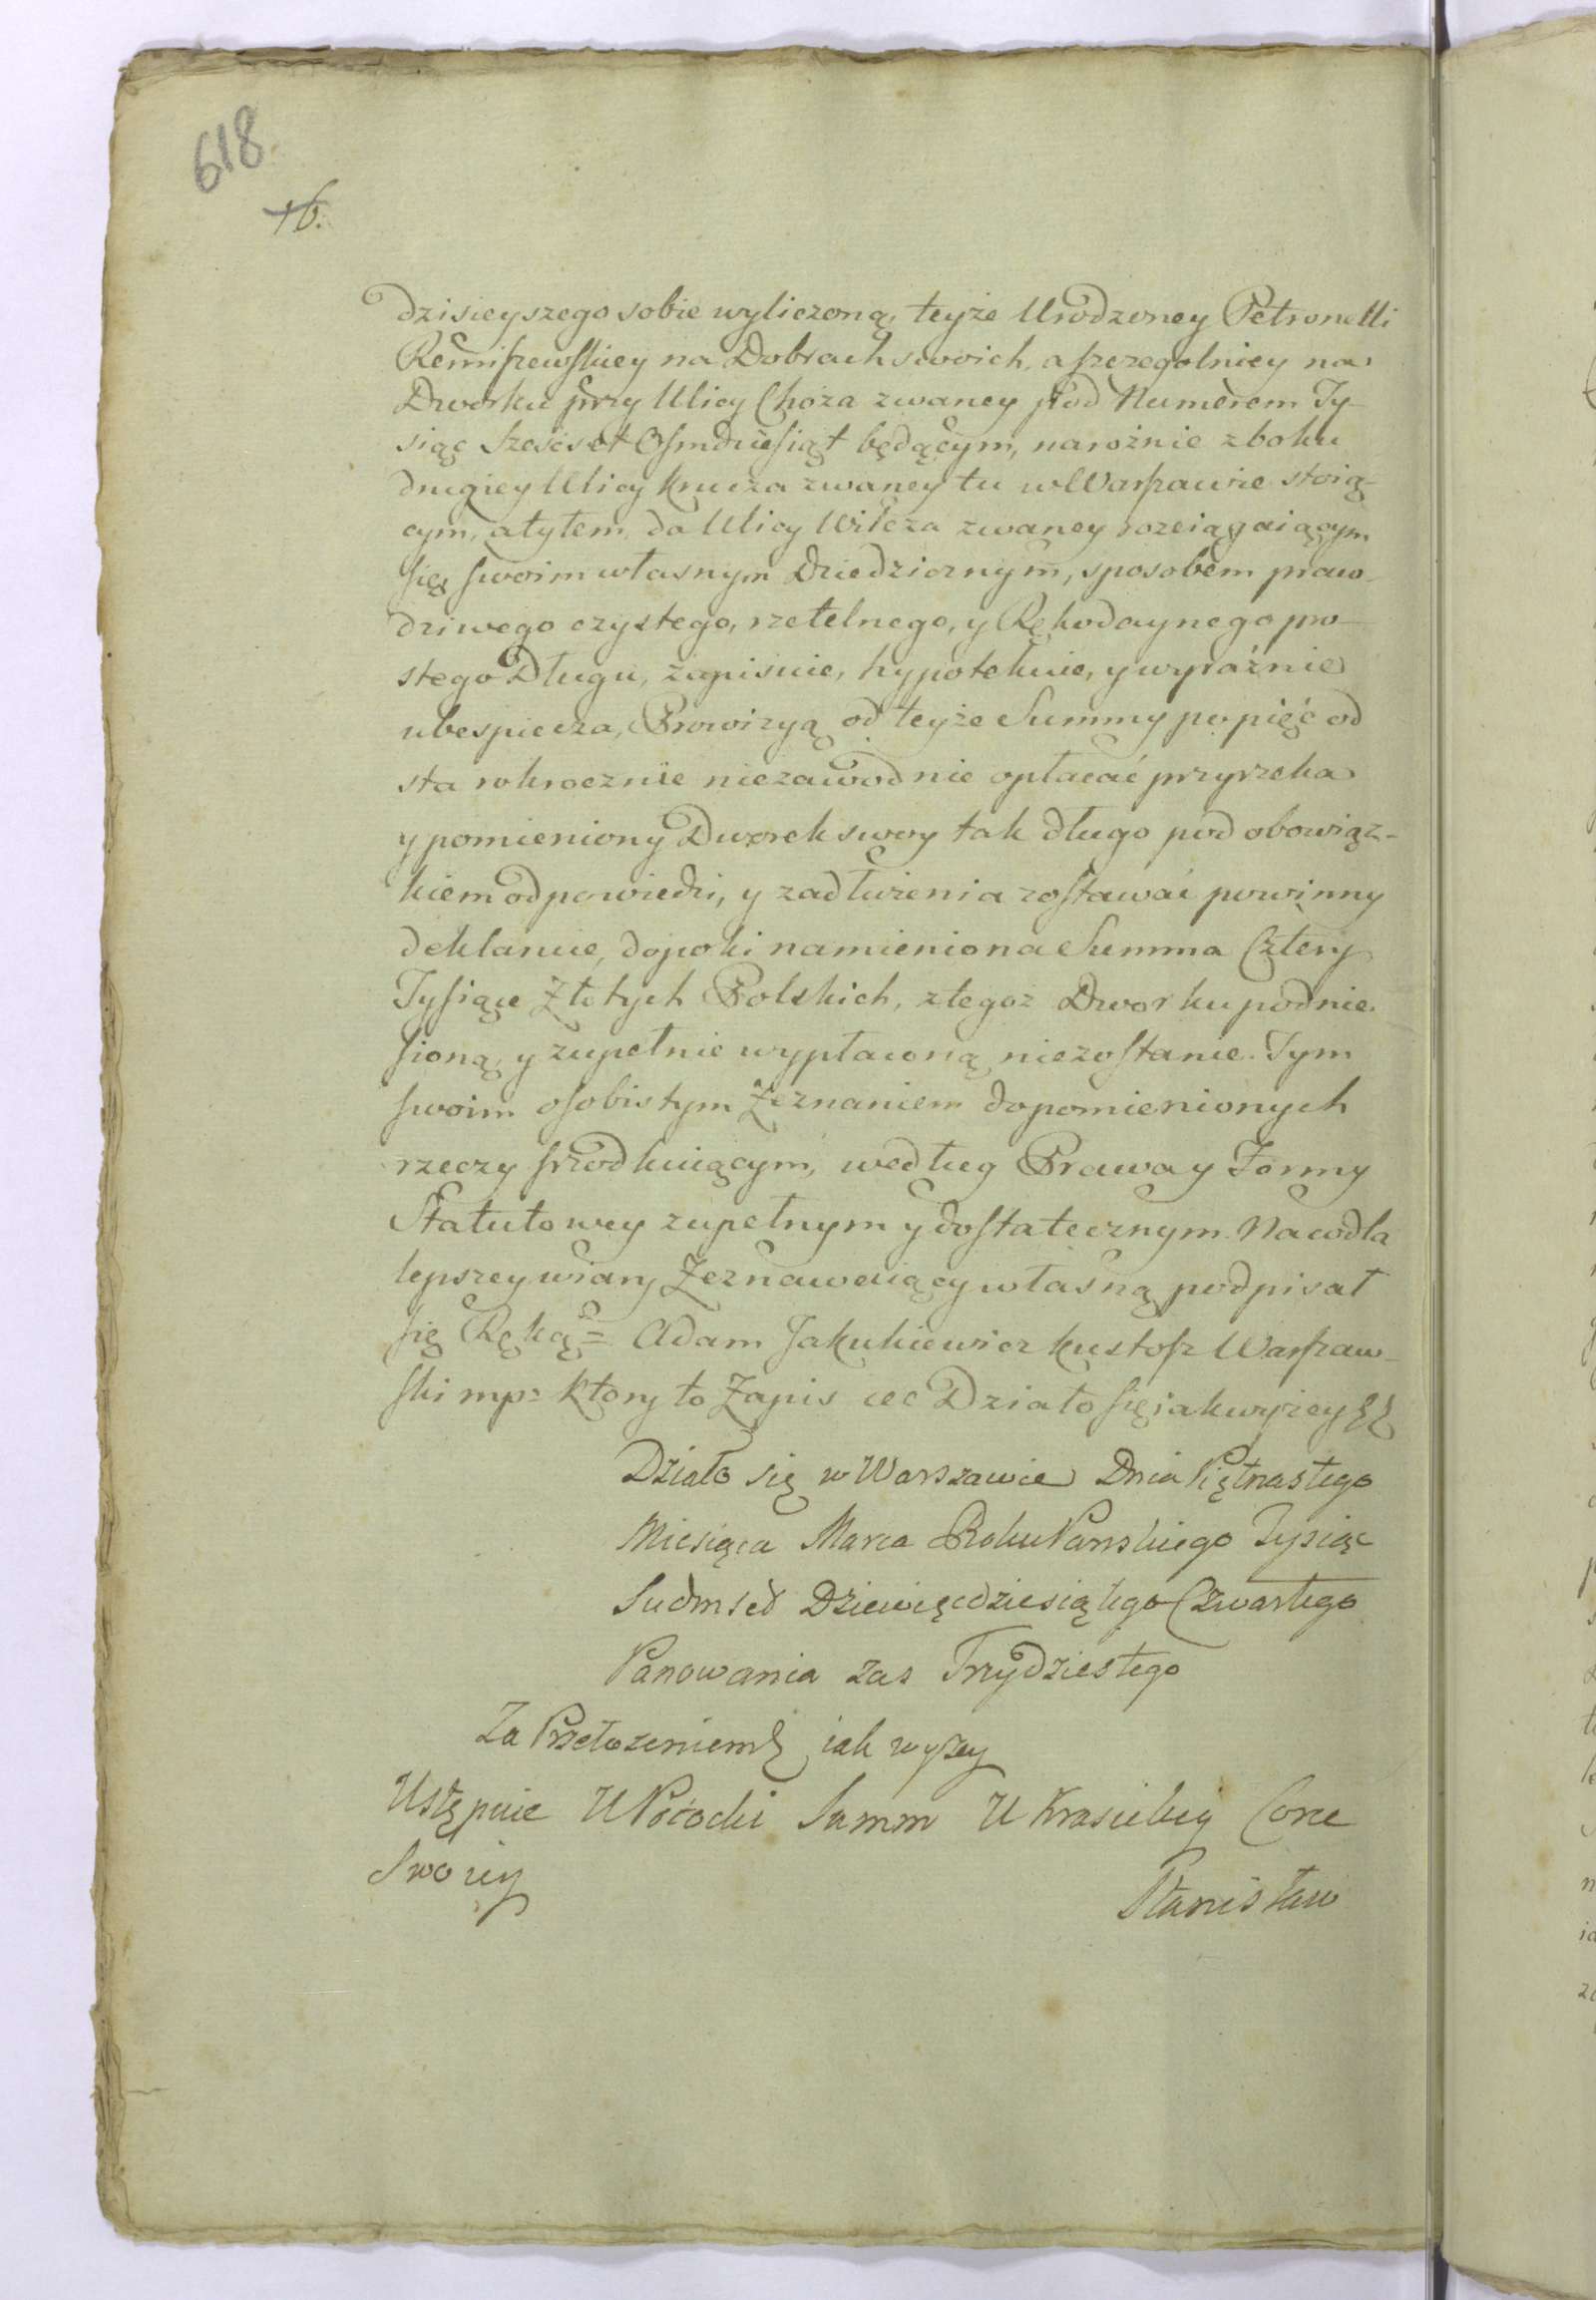 618
16.
dzisieyszego sobie wyliczoną, teyże Urodzoney Petronelli
Remiszewskiey na Dobrach swoich, a szczegolniey na
Dworku przy Ulicy Choza zwaney pod Numerem Ty-
siąc Sześćset Osmdziesiąt będącym, narożnie z boku
drugiey Ulicy Krucza zwaney tu w Warszawie stoią-
cym, a tyłem do Ulicy Wilcza zwaney rozciągaiącym
się swoim własnym Dziedzicznym, sposobem praw-
dziwego czystego, rzetelnego, y Rękodaynego pro-
stego Długu, zapisuie, hypotekuie, y wyraźnie
ubespiecza, Prowizyą od teyże Summy po pięć od
sta rokrocznie niezawodnie opłacać przyrzeka
y pomieniony Dworek swoy tak długo pod obowiąz-
kiem odpowiedzi, y zadłużenia zostawać powinny
deklaruie, dopoki namieniona Summa Cztery
Tysiące Złotych Polskich, z tegoz Dworku podnie-
sioną, y zupełnie wypłaconą niezostanie. Tym
swoim osobistym Zeznaniem do pomienionych
rzeczy srzodkuiącym, według Prawa y Formy
Statutowey zupełnym y dostatecznym. Na co dla
lepszey wiary Zeznawaiący własną podpisał
się Ręką = Adam Jakukiewicz Kustosz Warszaw-
ski mp: Ktory to Zapis etc Działo się iak wyżey
Działo się w Warszawie Dnia Piętnastego
Miesiąca Marca Roku Panskiego Tysiąc
Siedmset Dziewięćdziesiątego Czwartego
Panowania zas Trzydziestego
Za Przełozeniem iak wyzey
Ustępuie U Potocki Summ U Krasickiy Corce
Swoiey
Stanisław